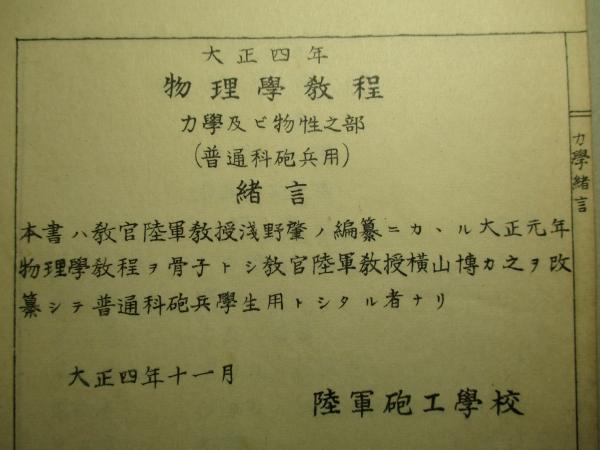 大正四年
物理學教程
力學及ビ物性之部
(普通科砲兵用)
緒言
本書ハ教官陸軍教授浅野肇ノ編纂ニカヽル大正元年
物理學教程ヲ骨子トシ教官陸軍教授横山博カ之ヲ改
纂シテ普通科砲兵學生用トシタル者ナリ
大正四年十一月
陸軍砲工學校
力學緒言